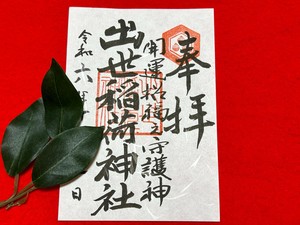 奉拝
開運招福之守護神
出世稲荷神社
令和六年
日